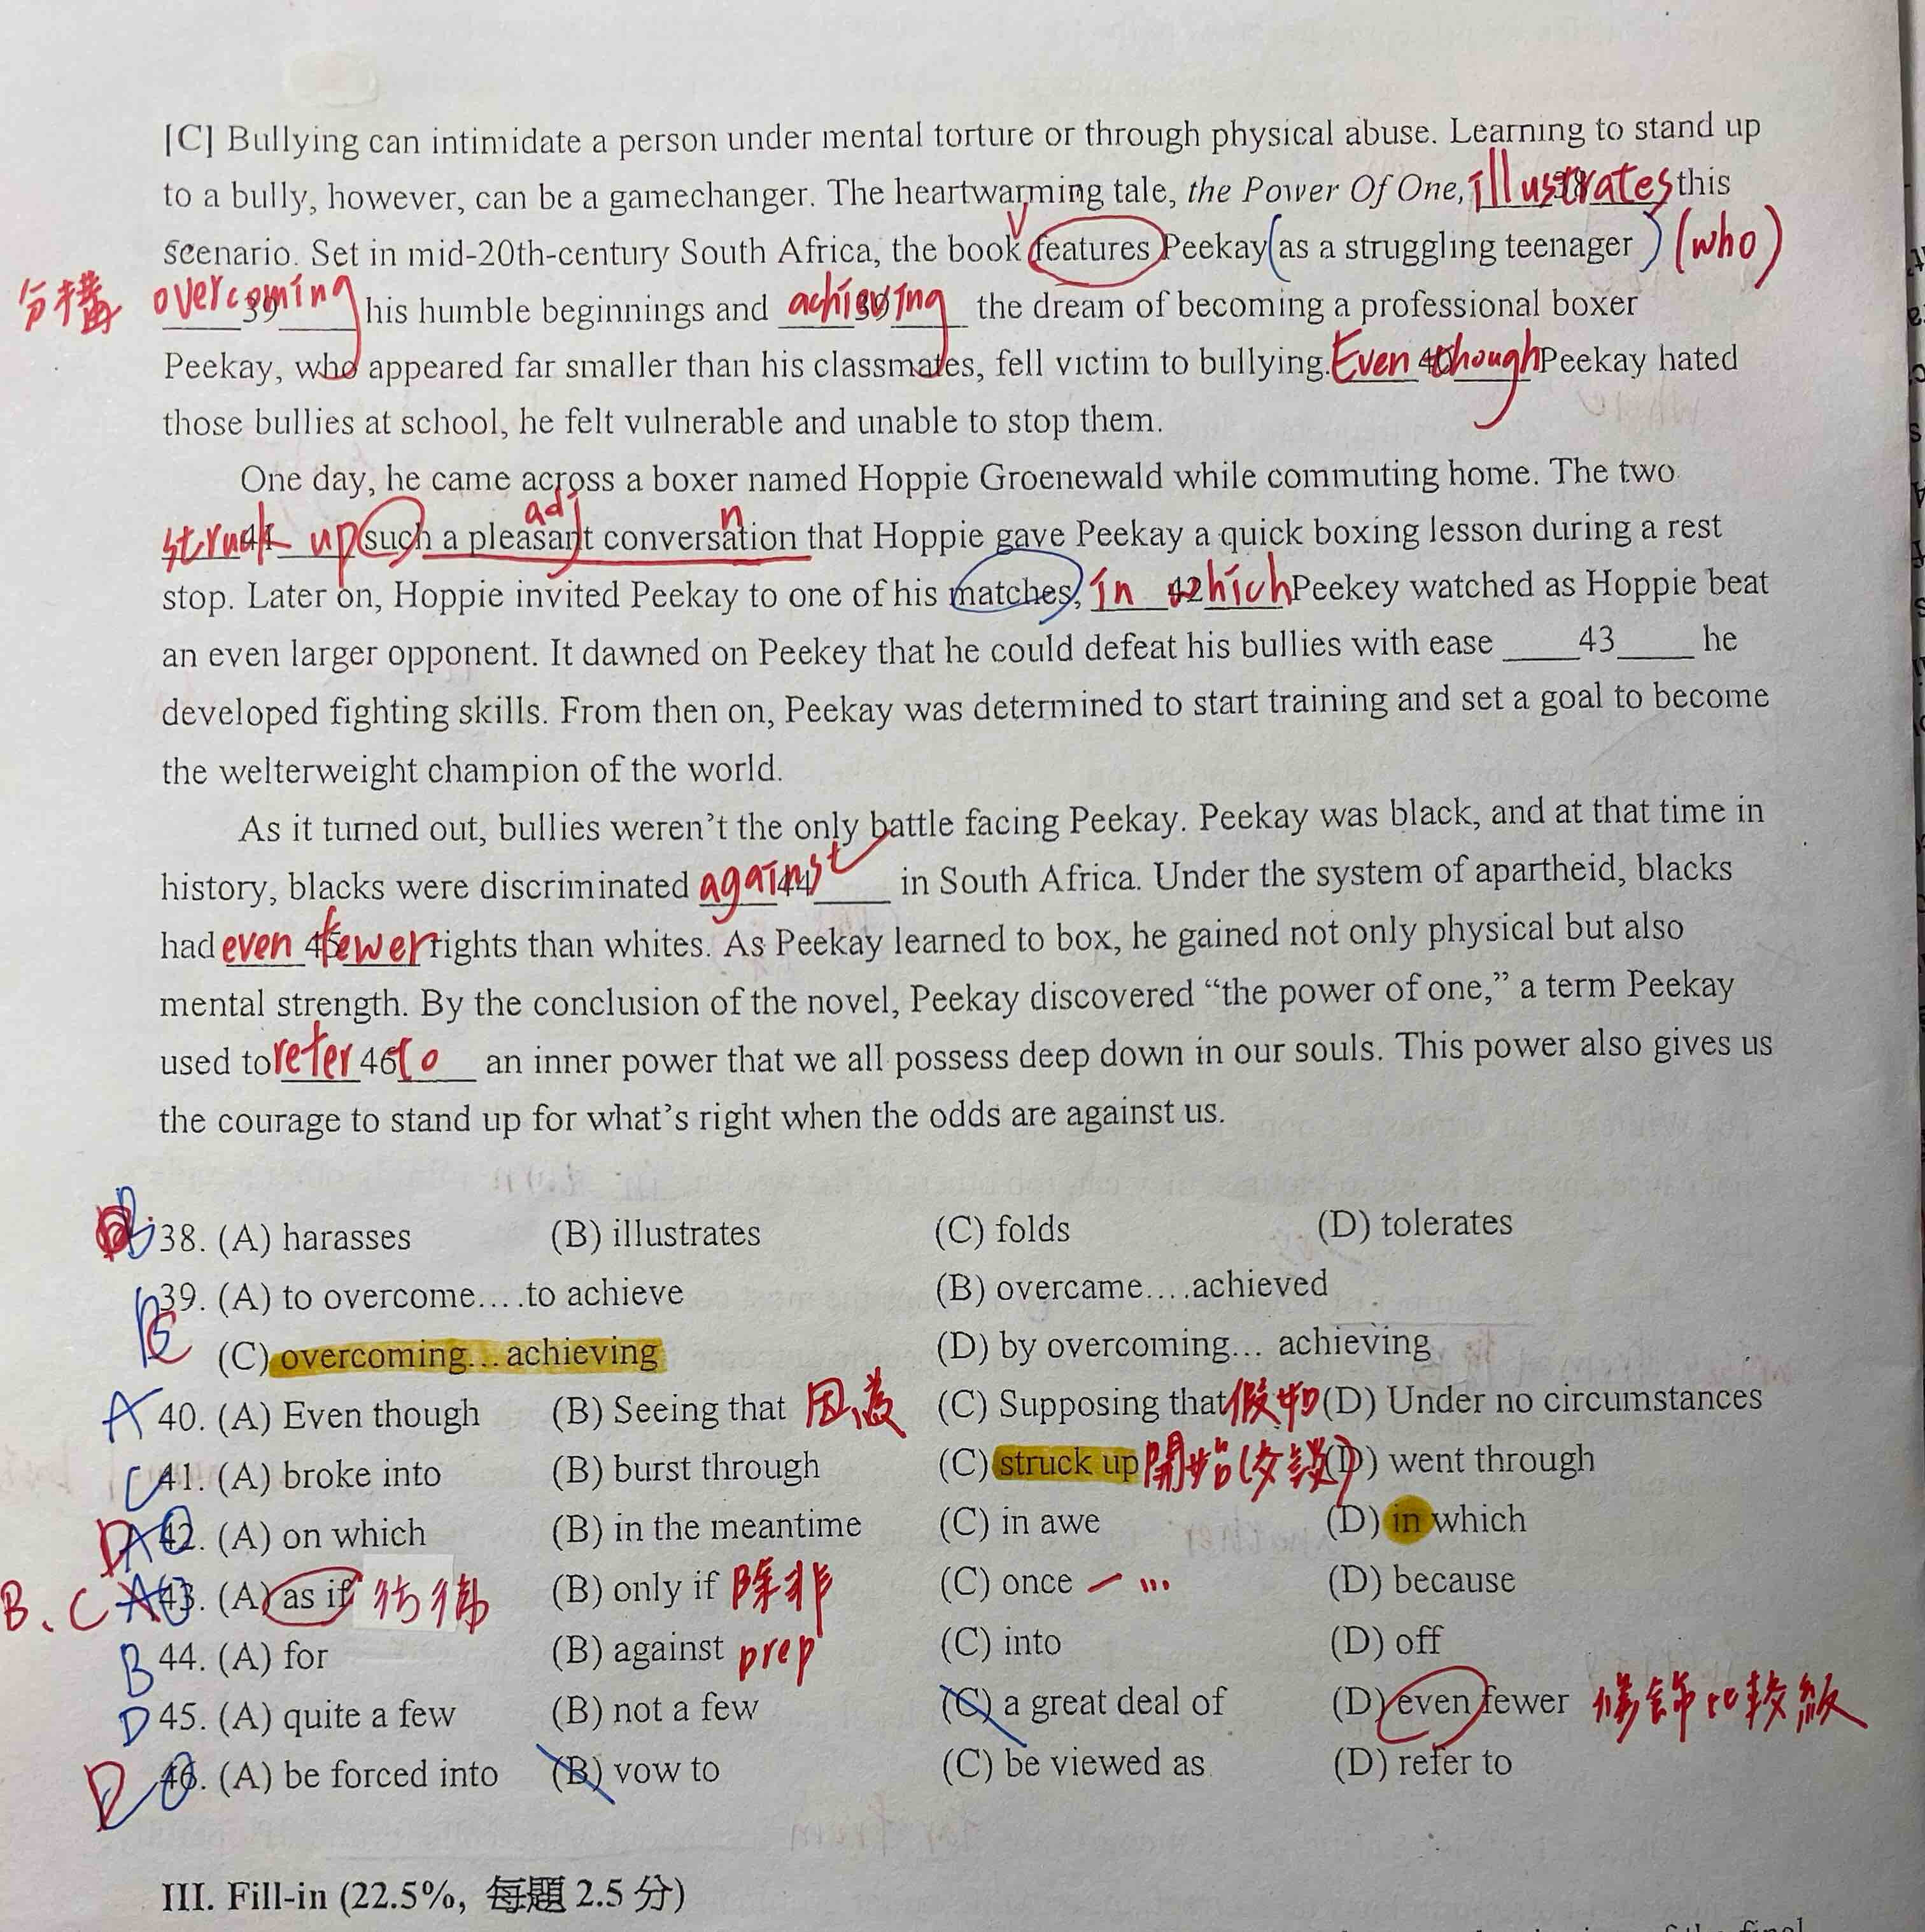 [C] Bullying can intimidate a person under mental torture or through physical abuse. Learning to stand up
to a bully, however, can be a gamechanger. The heartwarming tale, the Power Of One, 38 illustrates this
scenario. Set in mid-20th-century South Africa, the book features Peekay (as a struggling teenager) (who)
分構 overcoming 39 his humble beginnings and achieving 39 the dream of becoming a professional boxer
Peekay, who appeared far smaller than his classmates, fell victim to bullying. Even though 40 Peekay hated
those bullies at school, he felt vulnerable and unable to stop them.
One day, he came across a boxer named Hoppie Groenewald while commuting home. The two
adj n
struck up 41 such a pleasant conversation that Hoppie gave Peekay a quick boxing lesson during a rest
stop. Later on, Hoppie invited Peekay to one of his matches, in which 42 Peekey watched as Hoppie beat
an even larger opponent. It dawned on Peekey that he could defeat his bullies with ease ____43____ he
developed fighting skills. From then on, Peekay was determined to start training and set a goal to become
the welterweight champion of the world.
As it turned out, bullies weren't the only battle facing Peekay. Peekay was black, and at that time in
history, blacks were discriminated against 44 in South Africa. Under the system of apartheid, blacks
had even fewer 45 rights than whites. As Peekay learned to box, he gained not only physical but also
mental strength. By the conclusion of the novel, Peekay discovered “the power of one,” a term Peekay
used to refer to 46 an inner power that we all possess deep down in our souls. This power also gives us
the courage to stand up for what's right when the odds are against us.
B 38. (A) harasses (B) illustrates (C) folds (D) tolerates
39. (A) to overcome….to achieve (B) overcame….achieved
C (C) overcoming…achieving (D) by overcoming… achieving
A 40. (A) Even though (B) Seeing that 因為 (C) Supposing that 假如 (D) Under no circumstances
C 41. (A) broke into (B) burst through (C) struck up 開始(交談) (D) went through
D A 42. (A) on which (B) in the meantime (C) in awe (D) in which
B、C A 43. (A) as if 彷彿 (B) only if 除非 (C) once 一... (D) because
B 44. (A) for (B) against prep (C) into (D) off
D 45. (A) quite a few (B) not a few (C) a great deal of (D) even fewer 修飾比較級
D 46. (A) be forced into (B) vow to (C) be viewed as (D) refer to
III. Fill-in (22.5%, 每題 2.5 分)